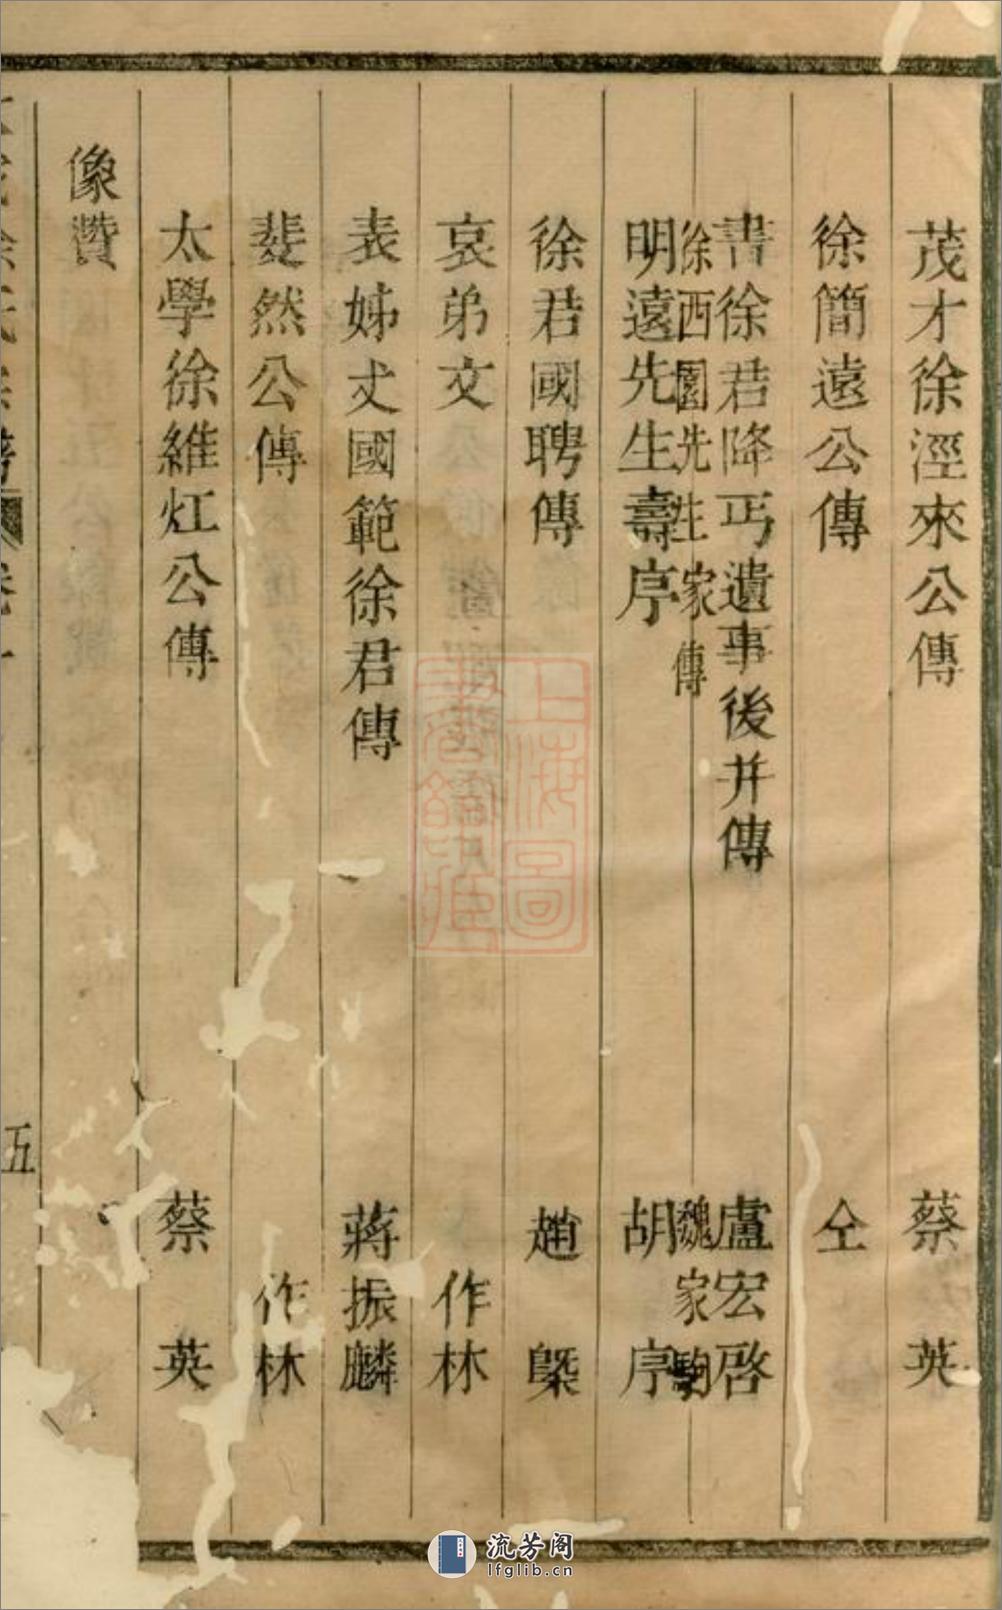 茂才徐涇來公傳 蔡英
徐簡遠公傳 仝
書徐君降丐遺事後并傳 盧宏啓
徐西園先生家傳 魏家駒
明遠先生壽序 胡序
徐君國聘傳 趙曁
哀弟文 作林
表姊丈國範徐君傳 蔣振麟
斐然公傳 作林
太學徐維矼公傳 蔡英
像贊
五
上海圖書館藏
流芳阁
lfglib.cn